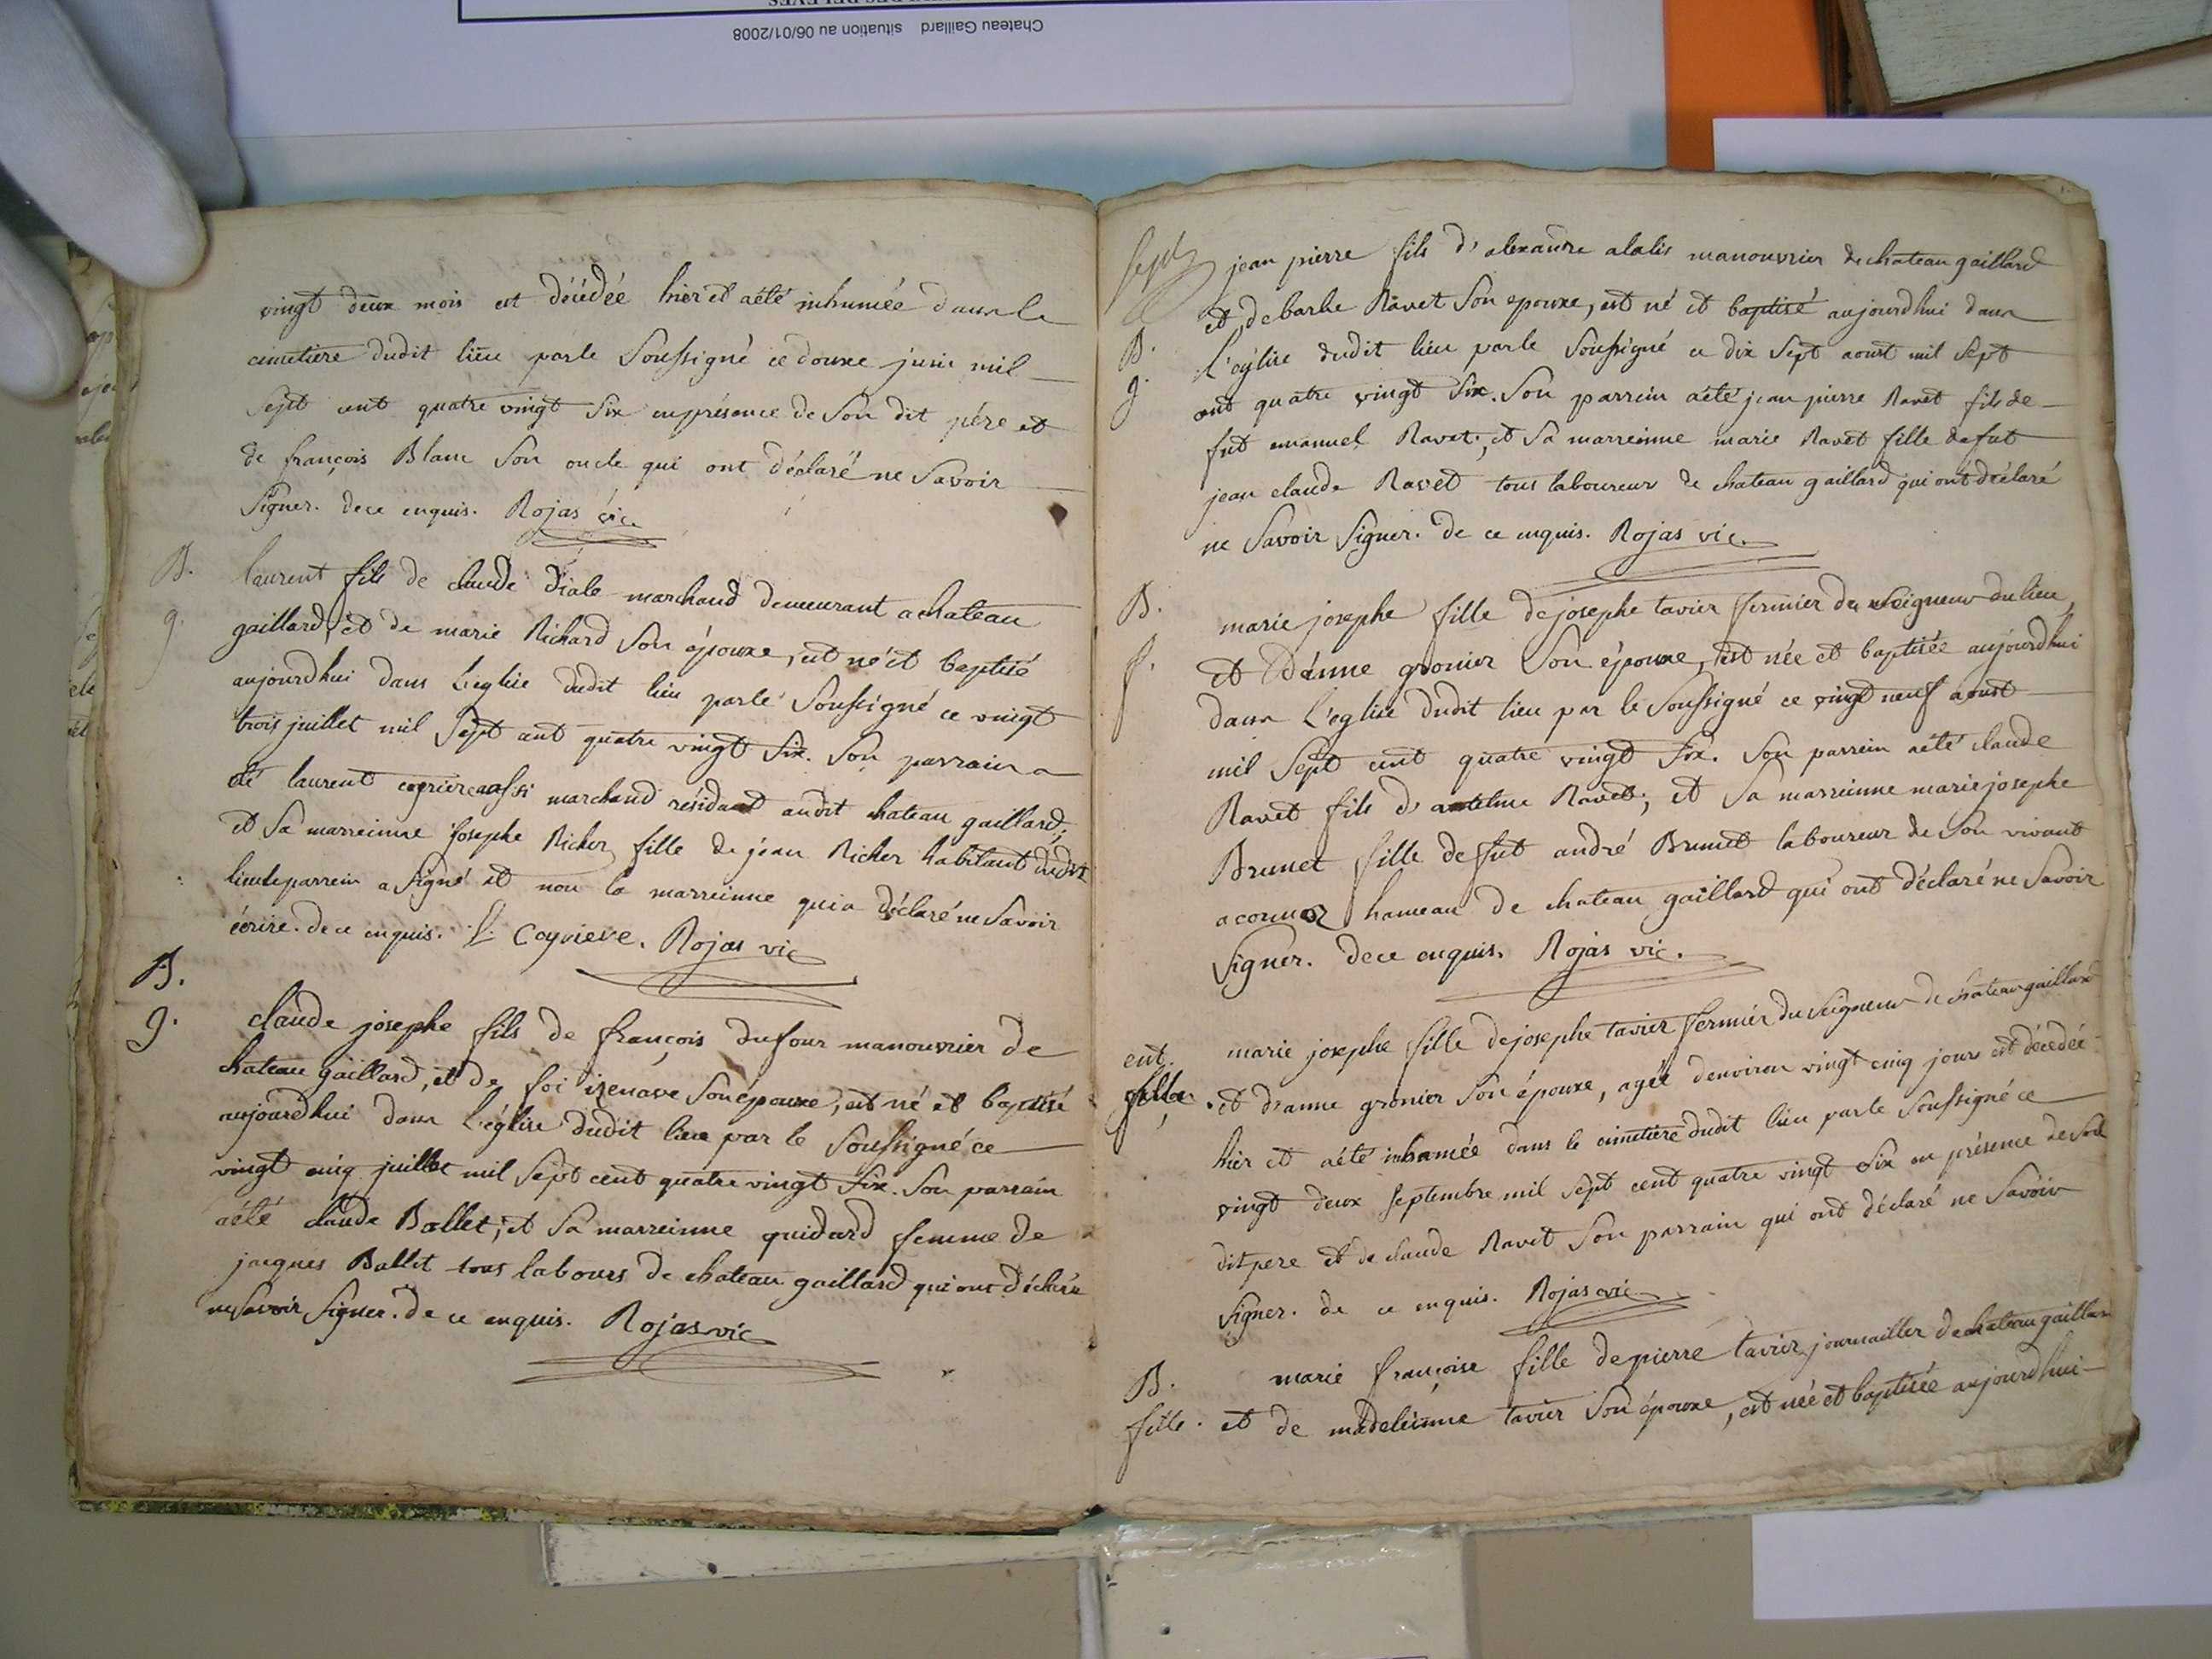 Chateau Gaillard situation au 06/01/2008
vingt deux mois est décédée hier et aété inhumée dans le
cimetiere dudit lieu parle Soussigné ce douxe juin mil
Sept cent quatre vingt Six enprésence de Son dit pére et
de françois Blanc Son oncle qui ont déclaré ne Savoir
Signer. dece enquis. Rojas vic.
B.
g.
laurent fils de claude diale marchand demeurant achateau
gaillard, et de marie Richard Son épouxe, est né et baptisé
aujourdhui dans L'eglise dudit lieu parle Soussigné ce vingt
trois juillet mil Sept cent quatre vingt Six. Son parrain a
été laurent aussi marchand résidant audit chateau gaillard;
et Sa marreinne josephe Richer fille de jean Richer habitant dudit
lieu le parrein a Signé et non la marreinne quia déclaré ne Savoir
écrire. de ce enquis. L. Coyrieve. Rojas vic
B.
g.
claude josephe fils de françois dufour manouvrier de
chateau gaillard, et de foi isenave Son épouxe, est né et baptisé
aujourdhui dans L'église dudit lieu par le Soussigné ce
vingt cinq juillet mil Sept cent quatre vingt Six. Son parrain
aété claude Ballet; et Sa marreinne guidard femme de
jacques Ballet tous labours de chateau gaillard qui ont déclaré
ne Savoir Signer. de ce enquis. Rojas vic
jean pierre fils d'alexandre alalis manouvrier de chateau gaillard
et de barbe Ravet Son epouxe, est né et baptisé aujourdhui dans
B.
g.
L'église dudit lieu parle Soussigné ce dix Sept aoust mil Sept
cent quatre vingt Six. Son parrein aété jean pierre Ravet fils de
fut emanuel Ravet; et Sa marreinne marie Ravet fille de fut
jean claude Ravet tous laboureur de chateau gaillard qui ont déclaré
ne Savoir Signer. de ce enquis. Rojas vic.
B.
f.
marie josephe fille de josephe tavier fermier du Seigneur du lieu,
et d'anne gronier Son épouxe, est née et baptisée aujourdhui
dans L'eglise dudit lieu par le Soussigné ce vingt neuf aoust
mil Sept cent quatre vingt Six. Son parrein aété claude
Ravet fils d'antelme Ravet; et Sa marreinne marie josephe
Brunet fille de fut andré Brunet laboureur de Son vivant
a hameau de chateau gaillard qui ont déclaré ne Savoir
Signer. dece enquis. Rojas vic.
ent.
fille.
marie josephe fille dejosephe tavier fermier du Seigneur de chateau gaillard
et d'anne gronier Son épouxe, agée denviron vingt cinq jours est décédée
hier et aété inhumée dans le cimetiere dudit lieu parle Soussigné ce
vingt deux septembre mil sept cent quatre vingt Six en présence de Son
dit pere et de claude Ravet Son parrain qui ont déclaré ne Savoir
Signer. de ce enquis. Rojas vic
B.
fille.
marie françoise fille de pierre tavier journailler de chateau gaillar
et de madeleinne tavier Son épouxe, est née et baptisée aujourdhui